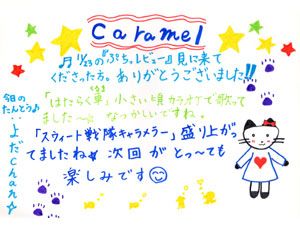 Caramel
♫ 1/23の『ぷち♪レビュー』見に来て
くださった方。ありがとうございました!!
「はたらく車」小さい頃カラオケで歌って
くるま
ました〜☆ なつかしいですね。
「スウィート戦隊キャラメラー」盛り上がっ
てましたね☆ 次回がとっ〜ても
楽しみです😊
今日の
たんとう♪
よだChan☆